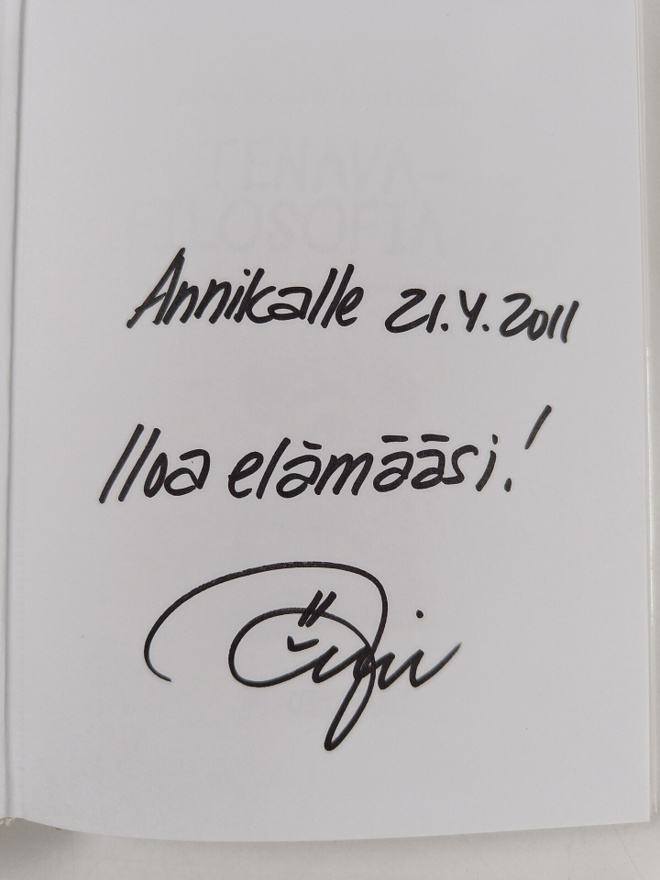 TENAVA-
FILOSOFIA
Annikalle 21.4.2011
Iloa elämääsi!